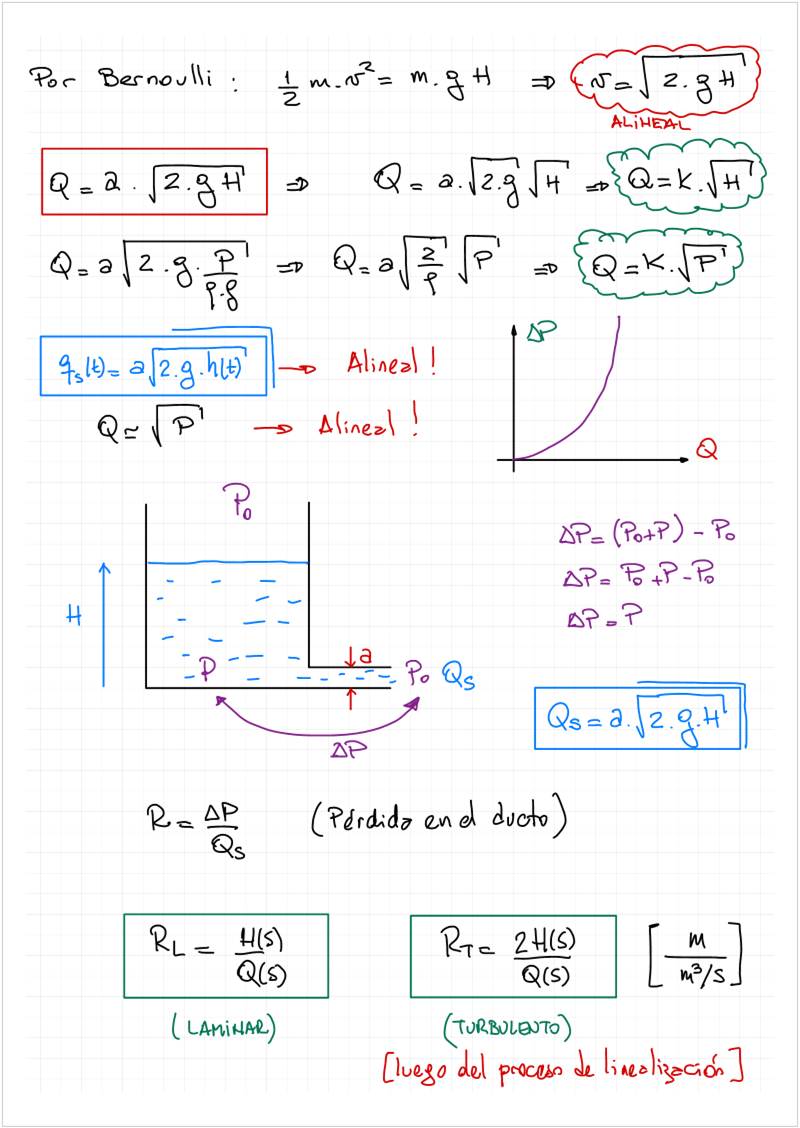 Por Bernoulli : 1/2 m.v² = m.g H ⇒ v = √(2.g H)
ALINEAL
Q = a . √(2.g H) ⇒ Q = a.√(2.g) √H ⇒ Q = K.√H
Q = a √(2.g. P/(ρ.g)) ⇒ Q = a √(2/ρ) √P ⇒ Q = K.√P
qs(t) = a √(2.g.h(t)) → Alineal !
Q ≃ √P → Alineal !
ΔP
Q
P₀
ΔP = (P₀+P) - P₀
ΔP = P₀ + P - P₀
ΔP = P
H
a
P P₀ Qs
ΔP
Qs = a.√(2.g.H)
R = ΔP/Qs (Pérdida en el ducto)
R_L = H(s)/Q(s) R_T = 2H(s)/Q(s) [m / m³/s]
(LAMINAR) (TURBULENTO)
[luego del proceso de linealización]